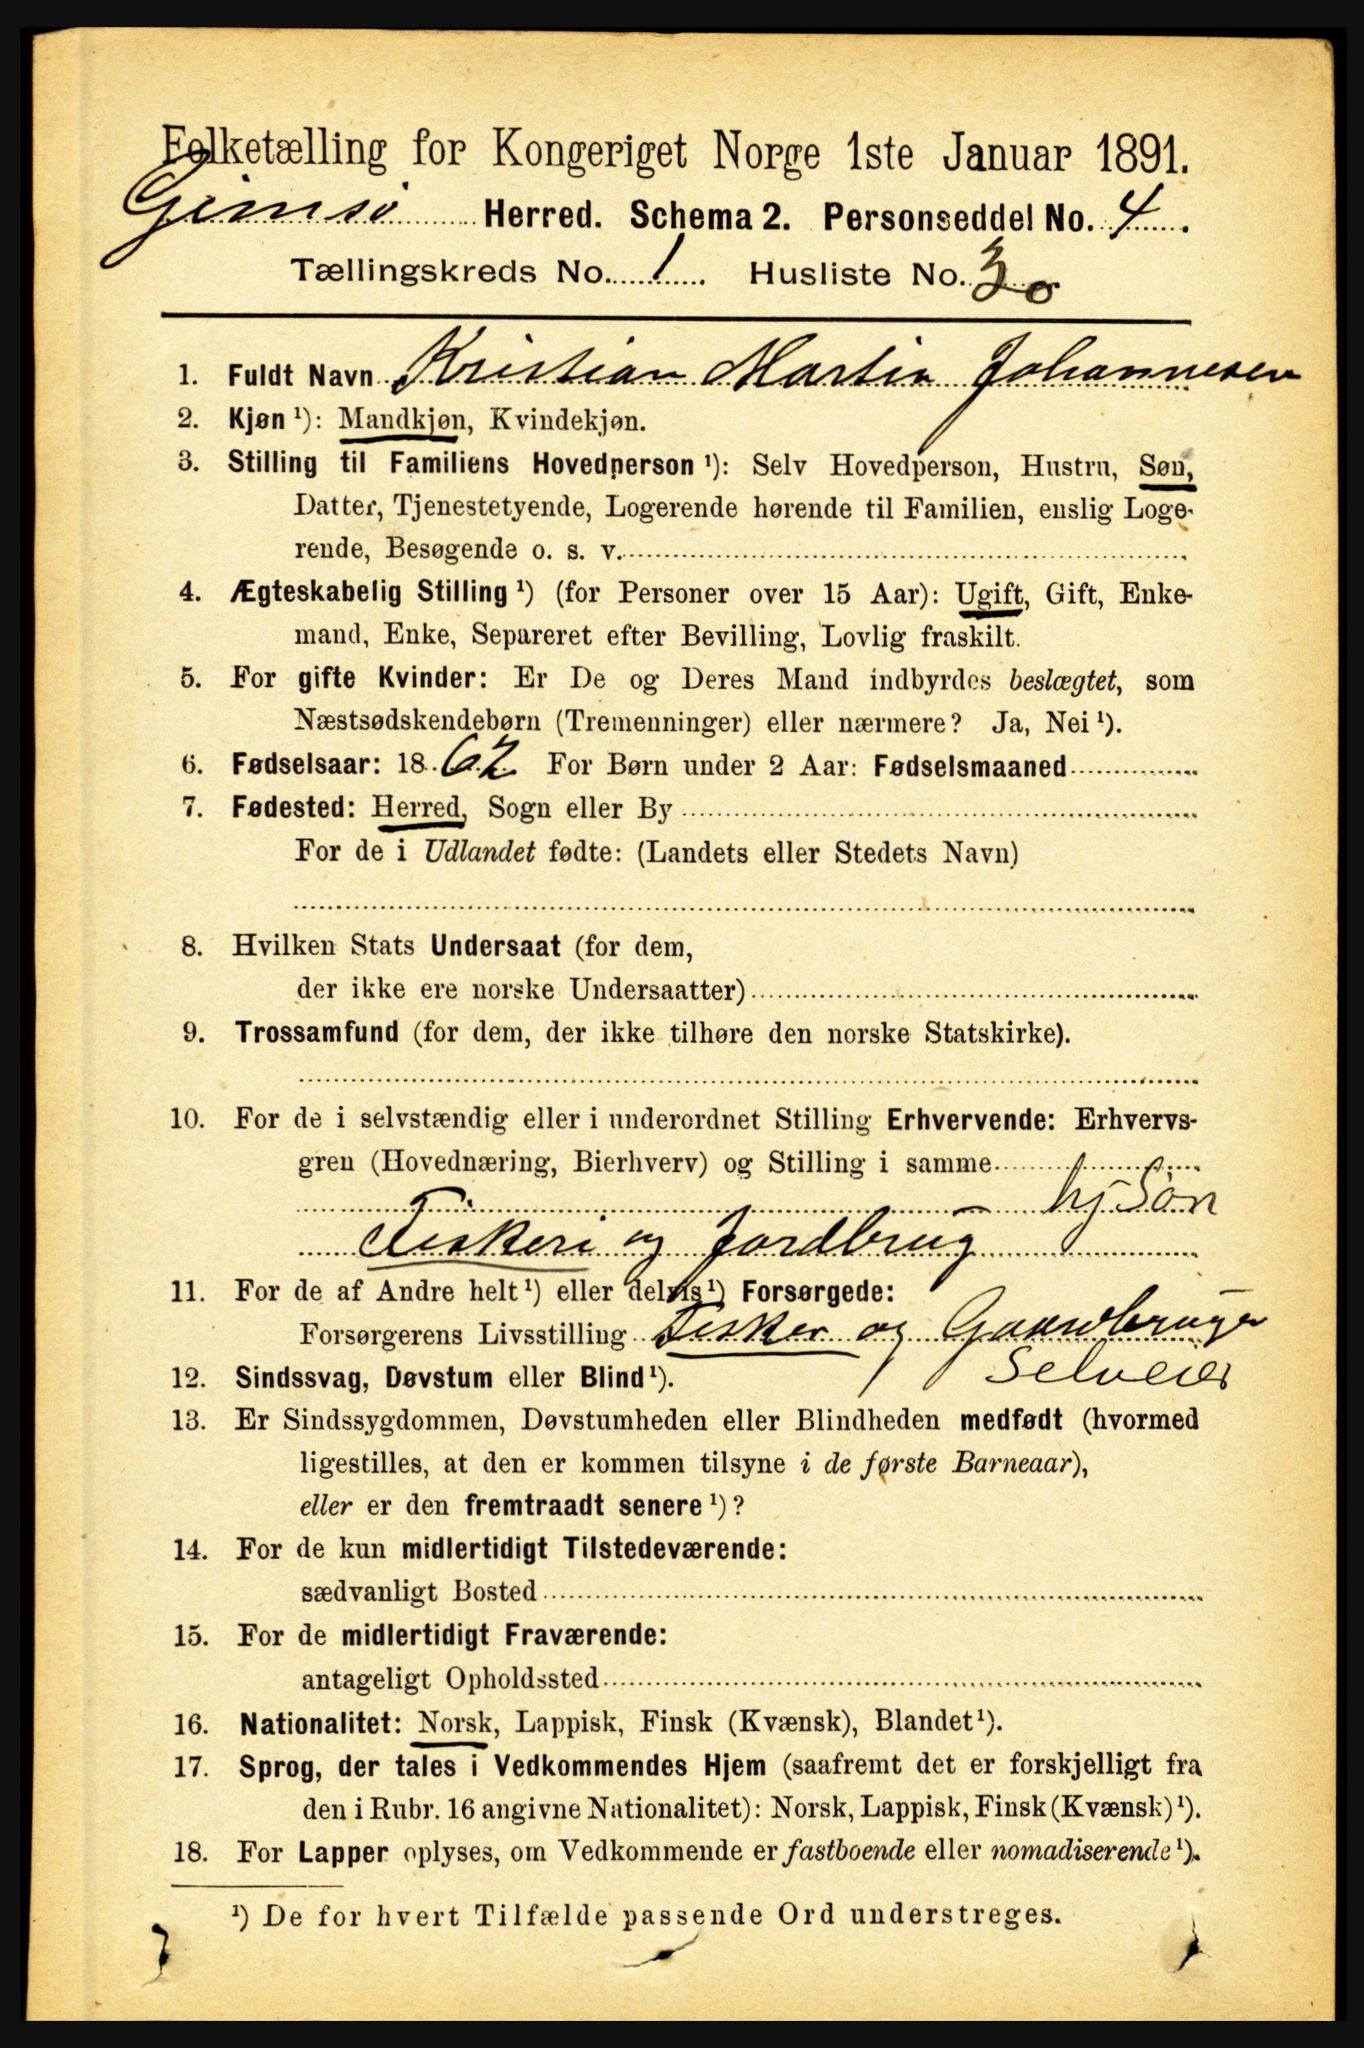 Folketælling for Kongeriget Norge 1ste Januar 1891.
Gimsø Herred. Schema 2. Personseddel No. 4.
Tællingskreds No. 1. Husliste No. 30
1. Fuldt Navn Kristian Martin Johannesen
2. Kjøn ¹): Mandkjøn, Kvindekjøn.
3. Stilling til Familiens Hovedperson ¹): Selv Hovedperson, Hustru, Søn,
Datter, Tjenestetyende, Logerende hørende til Familien, enslig Loge-
rende, Besøgende o. s. v.
4. Ægteskabelig Stilling ¹) (for Personer over 15 Aar): Ugift, Gift, Enke-
mand, Enke, Separeret efter Bevilling, Lovlig fraskilt.
5. For gifte Kvinder: Er De og Deres Mand indbyrdes beslægtet, som
Næstsødskendebørn (Tremenninger) eller nærmere? Ja, Nei ¹).
6. Fødselsaar: 1862 For Børn under 2 Aar: Fødselsmaaned
7. Fødested: Herred, Sogn eller By
For de i Udlandet fødte: (Landets eller Stedets Navn)
8. Hvilken Stats Undersaat (for dem,
der ikke ere norske Undersaatter)
9. Trossamfund (for dem, der ikke tilhøre den norske Statskirke).
10. For de i selvstændig eller i underordnet Stilling Erhvervende: Erhvervs-
gren (Hovednæring, Bierhverv) og Stilling i samme
hj. Søn
Fiskeri og Jordbrug
11. For de af Andre helt ¹) eller delvis ¹) Forsørgede:
Forsørgerens Livsstilling Fisker og Gaardbruger
Selveier
12. Sindssvag, Døvstum eller Blind ¹).
13. Er Sindssygdommen, Døvstumheden eller Blindheden medfødt (hvormed
ligestilles, at den er kommen tilsyne i de første Barneaar),
eller er den fremtraadt senere ¹)?
14. For de kun midlertidigt Tilstedeværende:
sædvanligt Bosted
15. For de midlertidigt Fraværende:
antageligt Opholdssted
16. Nationalitet: Norsk, Lappisk, Finsk (Kvænsk), Blandet ¹).
17. Sprog, der tales i Vedkommendes Hjem (saafremt det er forskjelligt fra
den i Rubr. 16 angivne Nationalitet): Norsk, Lappisk, Finsk (Kvænsk) ¹).
18. For Lapper oplyses, om Vedkommende er fastboende eller nomadiserende ¹).
¹) De for hvert Tilfælde passende Ord understreges.